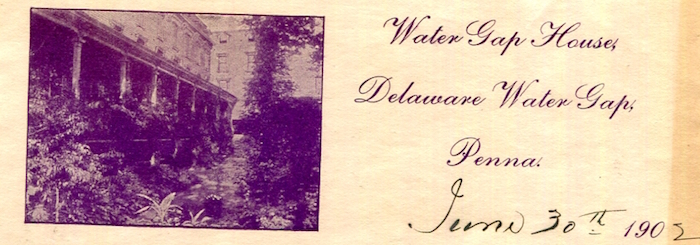 Water Gap House,
Delaware Water Gap,
Penna.
June 30th 1902